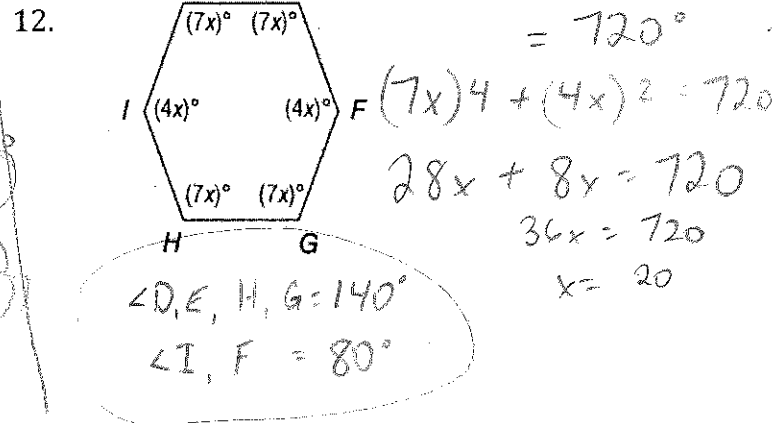 12.
(7x)° (7x)°
I (4x)° (4x)° F
(7x)° (7x)°
H G
= 720°
(7x)4 + (4x)2 = 720
28x + 8x = 720
36x = 720
x = 20
∠D, E, H, G = 140°
∠I, F = 80°